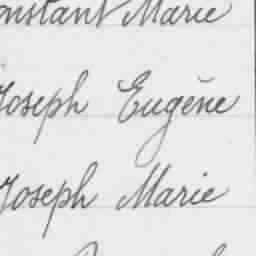 Constant Marie
Joseph Eugène
Joseph Marie